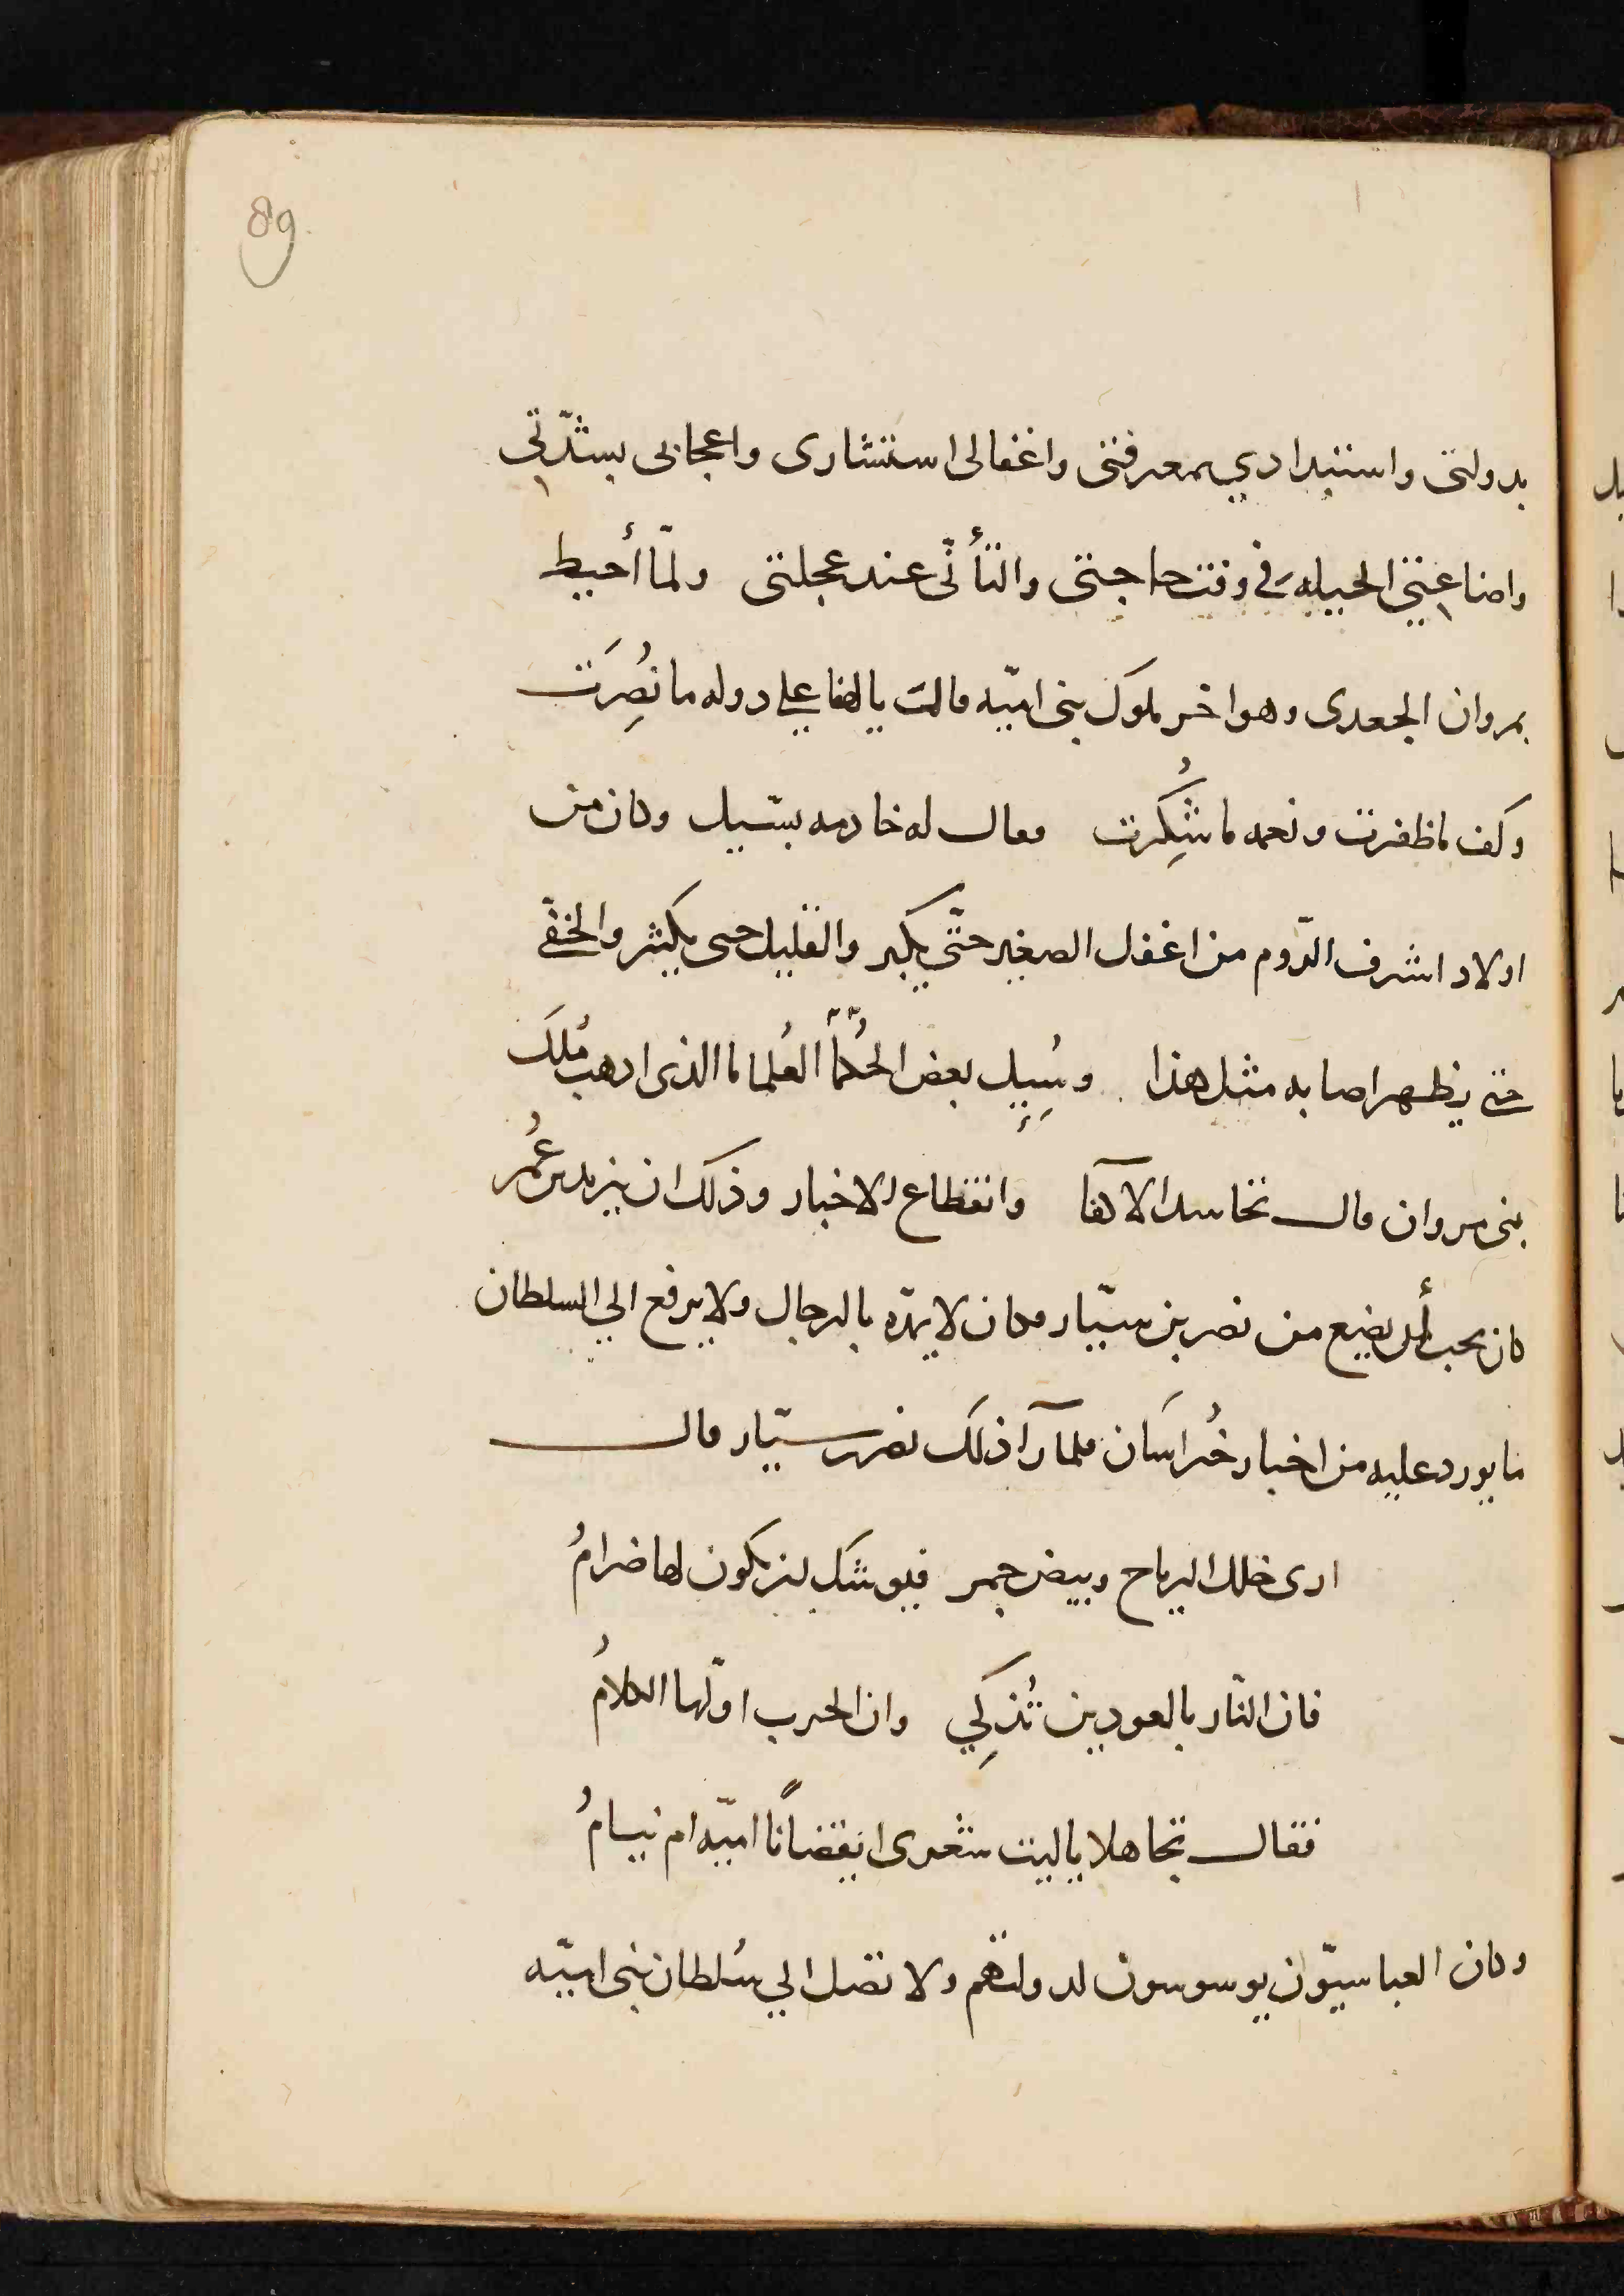 89
بدولتى واستبدادي بمعرفتى واغفالى استشارى واعجابى بشدّتي
واضاعتي الحيله في وقت حاجتى والتأنّى عند عجلتى ولمّا أحيط
بمروان الجعدى وهو اخر ملوك بنى اميّه قالت يا لهفا على دوله ما نُصِرَت
وكف ما ظفرت ونعمه ما شُكِرت فقال له خادمه بسّيل وكان من
اولاد اشرف الرّوم من اغفل الصغير حتّى يكبر والقليل حتى يكثر والخفّي
حتى يظهر اصابه مثل هذا وسُئِيل بعض الحُكمآ العُلما ما الذى اذهب مُلك
بنى مروان قال تحاسد الاكفآ وانقطاع الاخبار وذلك ان يزيد بن عُمر
كان يحب أن يضيع من نصر بن سيّار فكان لا يمدّه بالرجال ولا يرفع الي السلطان
ما يورد عليه من اخبار خُراسان فلما رآ ذلك نصر بن سيّار قال
ارى خلل الرياح وبيض جمر فيوشك ان يكون لها ضرامُ
فان النّار بالعودين تُذكِي وان الحرب اوّلها الكلامُ
فقال تجاهلا يا ليت شعرى ايقضاناً اميّه ام نيامُ
وكان العباسيّون يوسوسون لدولتهم ولا تصل الي سُلطان بنى اميّه